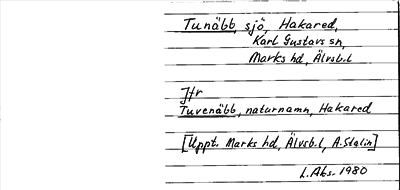 Tunäbb, sjö, Hakared,
Karl Gustavs sn,
Marks hd, Älvsb.l
Jfr
Tuvenäbb, naturnamn, Hakared
[Uppt. Marks hd, Älvsb.l, A. Stalin]
L. Abs. 1980